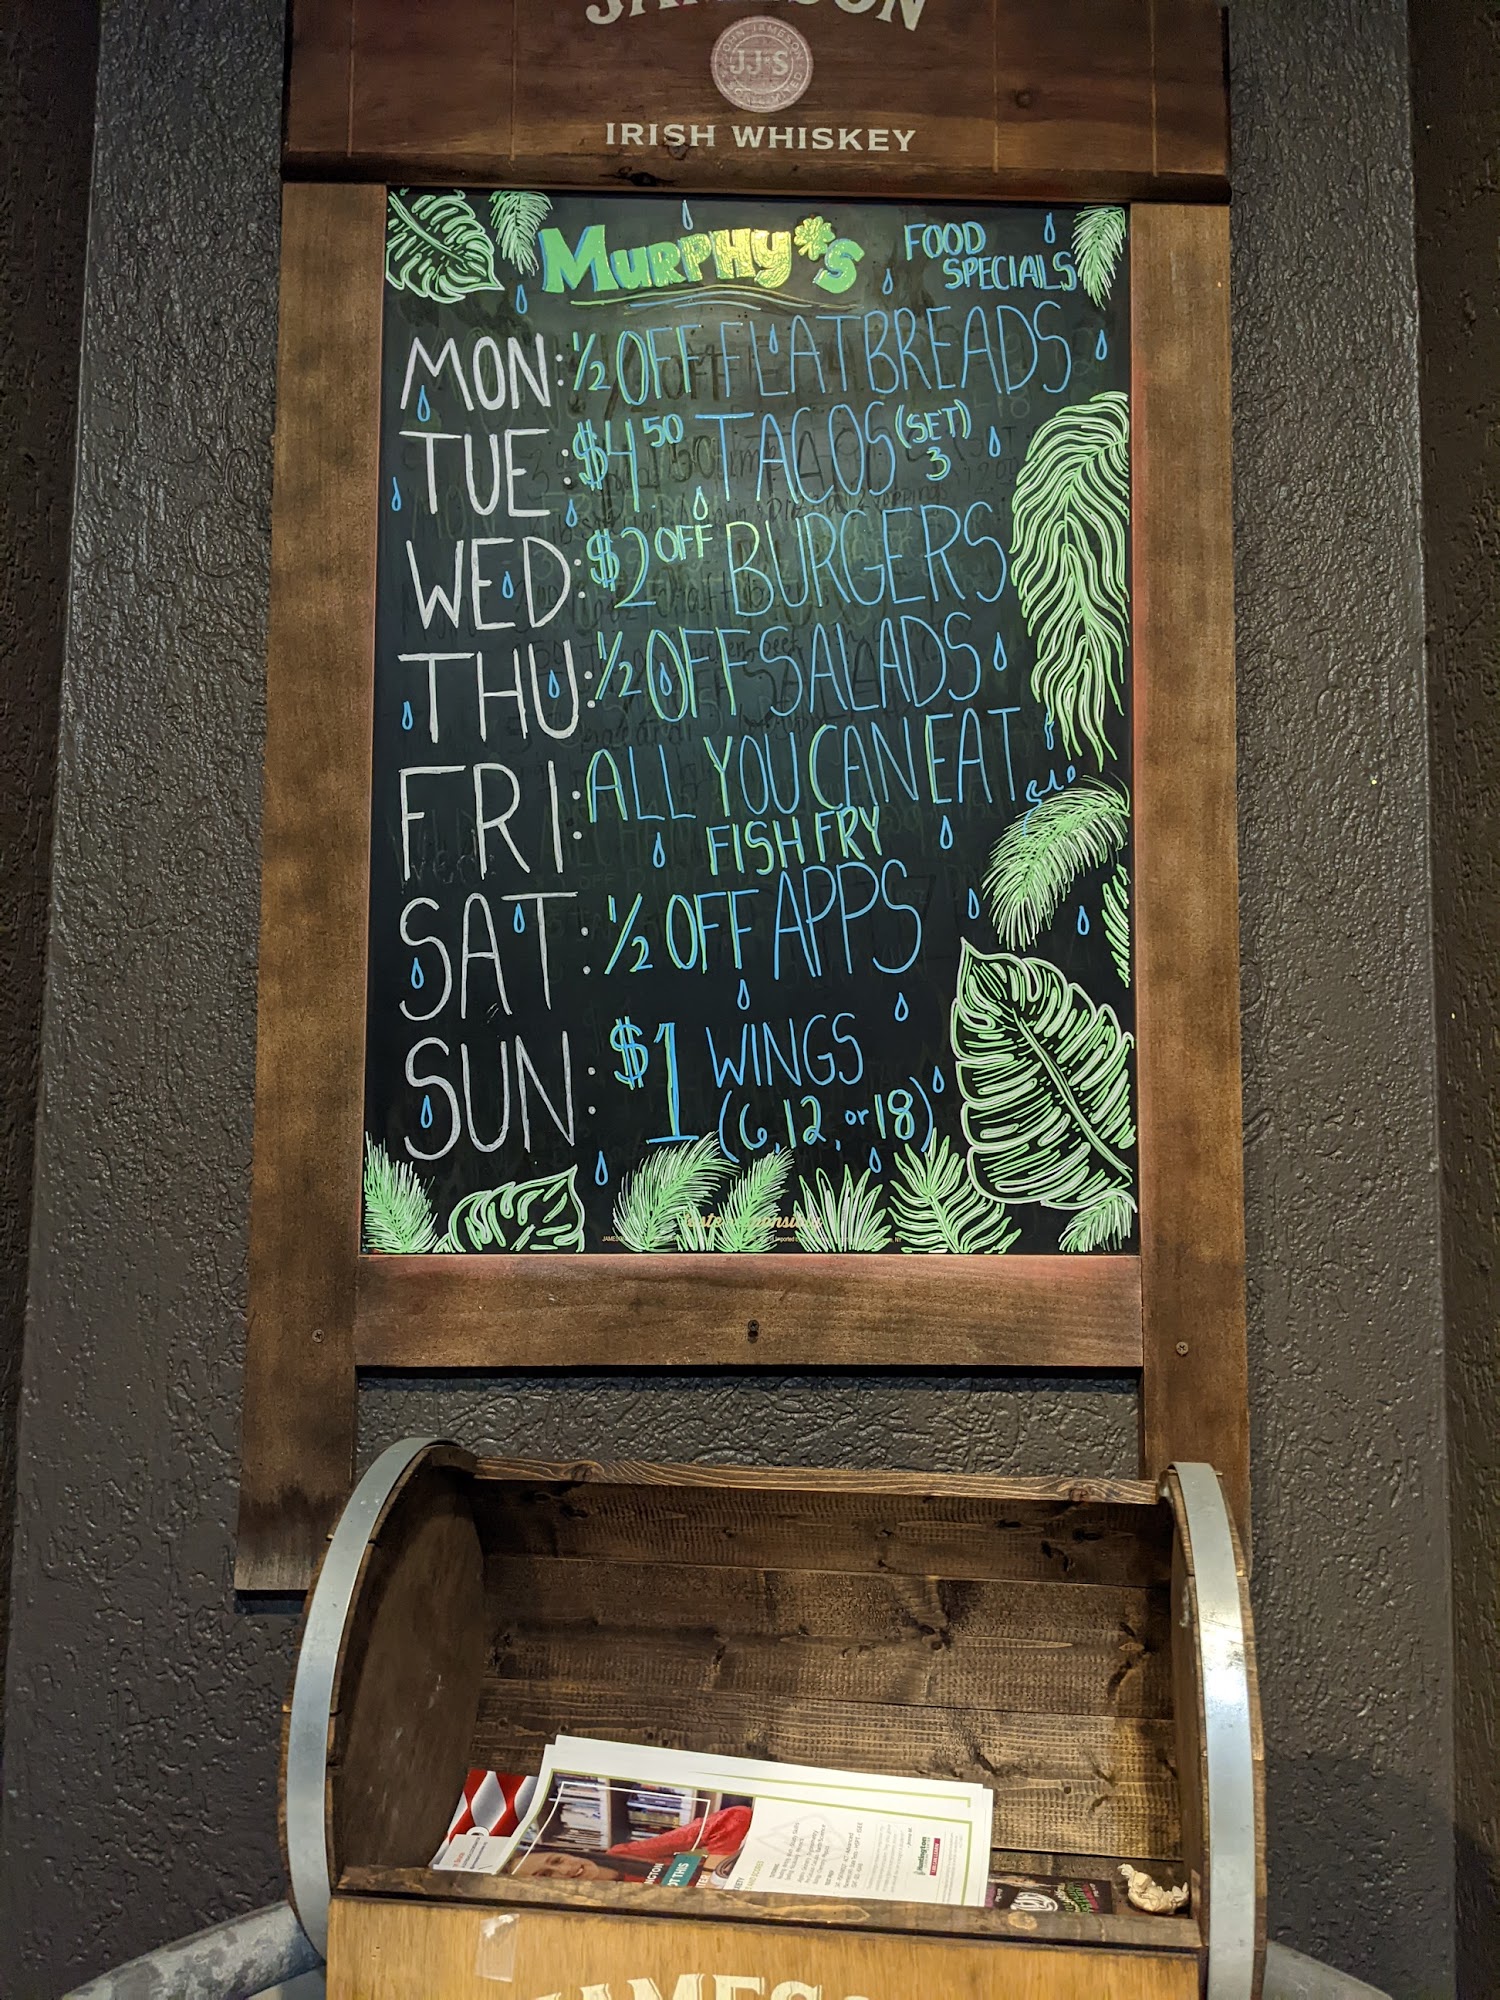 JAMESON
JOHN JAMESON
JJ&S
IRISH WHISKEY
MURPHY'S
FOOD
SPECIALS
MON: 1/2 OFF FLATBREADS
TUE: $4.50 TACOS (SET) 3
WED: $2 OFF BURGERS
THU: 1/2 OFF SALADS
FRI: ALL YOU CAN EAT
FISH FRY
SAT: 1/2 OFF APPS
SUN: $1 WINGS
(6, 12, or 18)
Huntington
JAMESON